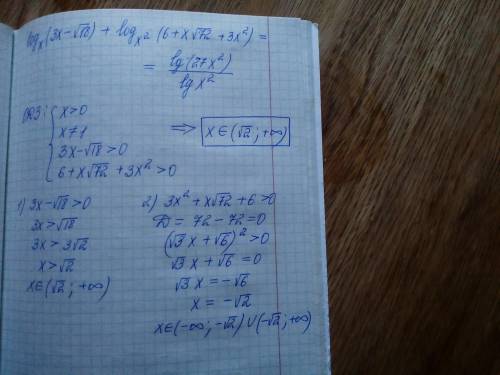 log_x (3x-√18) + log_{x²} (6+x√72+3x²) =
= lg(27x²) / lg x²
ОДЗ: { x>0
x≠1
3x-√18>0 ⟹ x∈(√2; +∞)
6+x√72+3x²>0
1) 3x-√18>0
3x>√18
3x>3√2
x>√2
x∈(√2; +∞)
2) 3x²+x√72+6>0
D=72-72=0
(√3x+√6)²>0
√3x+√6=0
√3x=-√6
x=-√2
x∈(-∞;-√2)∪(-√2;+∞)